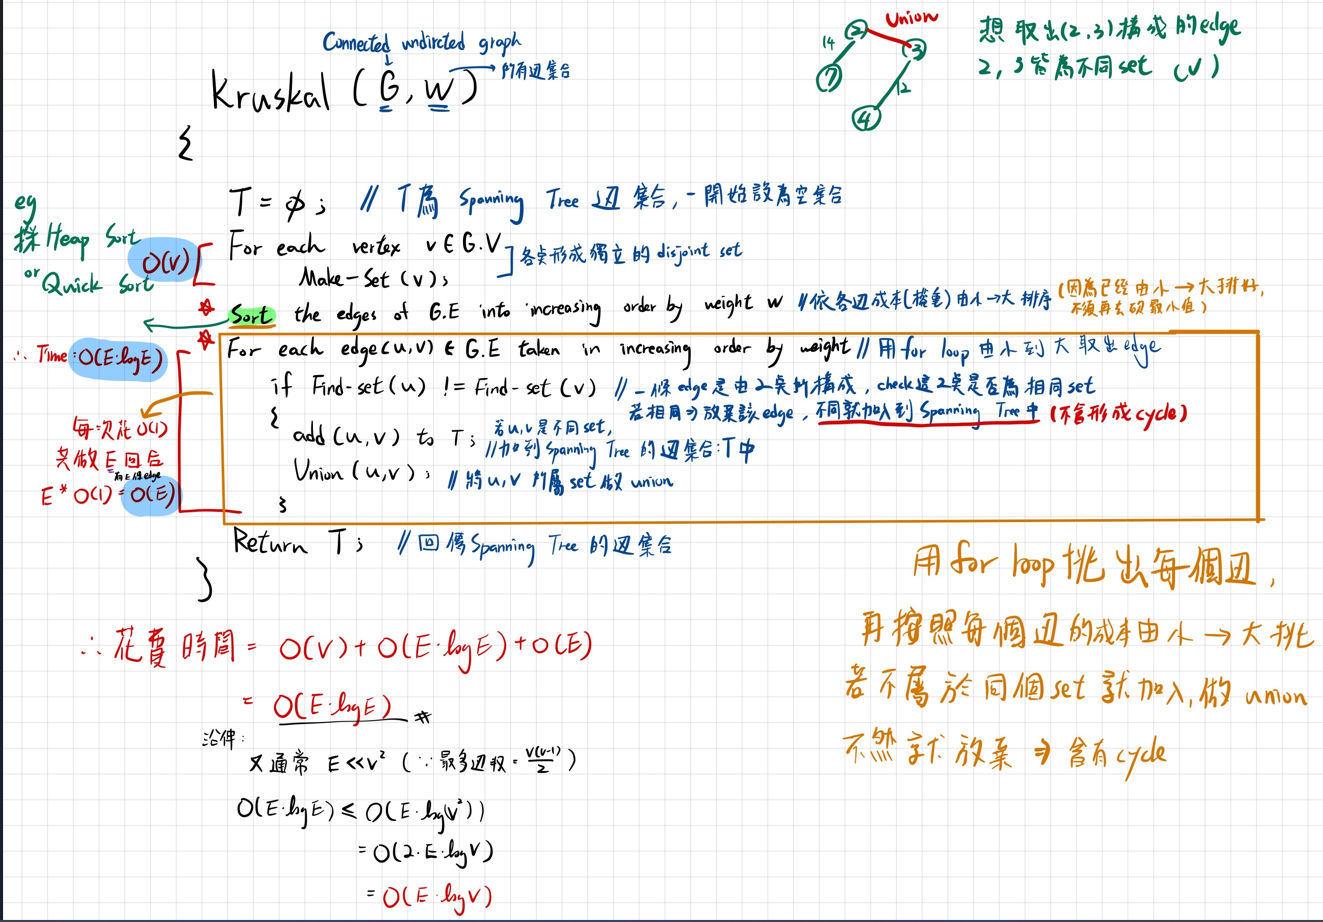 Connected undirceted graph
Kruskal (G, W)
→ 所有边集合
{
Union
14
2
3
7
12
4
想取出(2,3)構成的edge
2, 3皆為不同set (V)
T = ∅; // T為 Spanning Tree 边集合, 一開始設為空集合
eg
採 Heap Sort
or Quick Sort
O(V)
For each vertex v ∈ G.V
Make-Set (v);
各点形成獨立的 disjoint set
Sort the edges of G.E into increasing order by weight w // 依各边成本(權重)由小→大排序
(因為已經由小→大排好,
不後再去砍最小值)
∴ Time: O(E·logE)
For each edge(u,v) ∈ G.E taken in increasing order by weight // 用for loop 由小到大取出edge
if Find-set(u) != Find-set (v) // 一條edge是由2点所構成, check這2点是否為相同set
若相同⇒放棄該edge, 不同就加入到 Spanning Tree中 (不會形成cycle)
{
add(u,v) to T; 若u,v是不同set,
// 加到Spanning Tree 的边集合:T中
Union (u,v); // 將u,v 所屬set做union
}
每次花O(1)
共做E回合
有E條edge
E * O(1) = O(E)
Return T; // 回傳Spanning Tree 的边集合
}
用for loop 挑出每個边,
再按照每個边的成本由小→大挑
若不屬於同個set 就加入,做 union
不然就放棄 ⇒ 會有cycle
∴ 花費時間 = O(V) + O(E·logE) + O(E)
= O(E·logE) #
延伸:
又通常 E << V² (∵最多边數 = V(V-1)/2)
O(E·logE) ≤ O(E·log(V²))
= O(2·E·logV)
= O(E·logV)